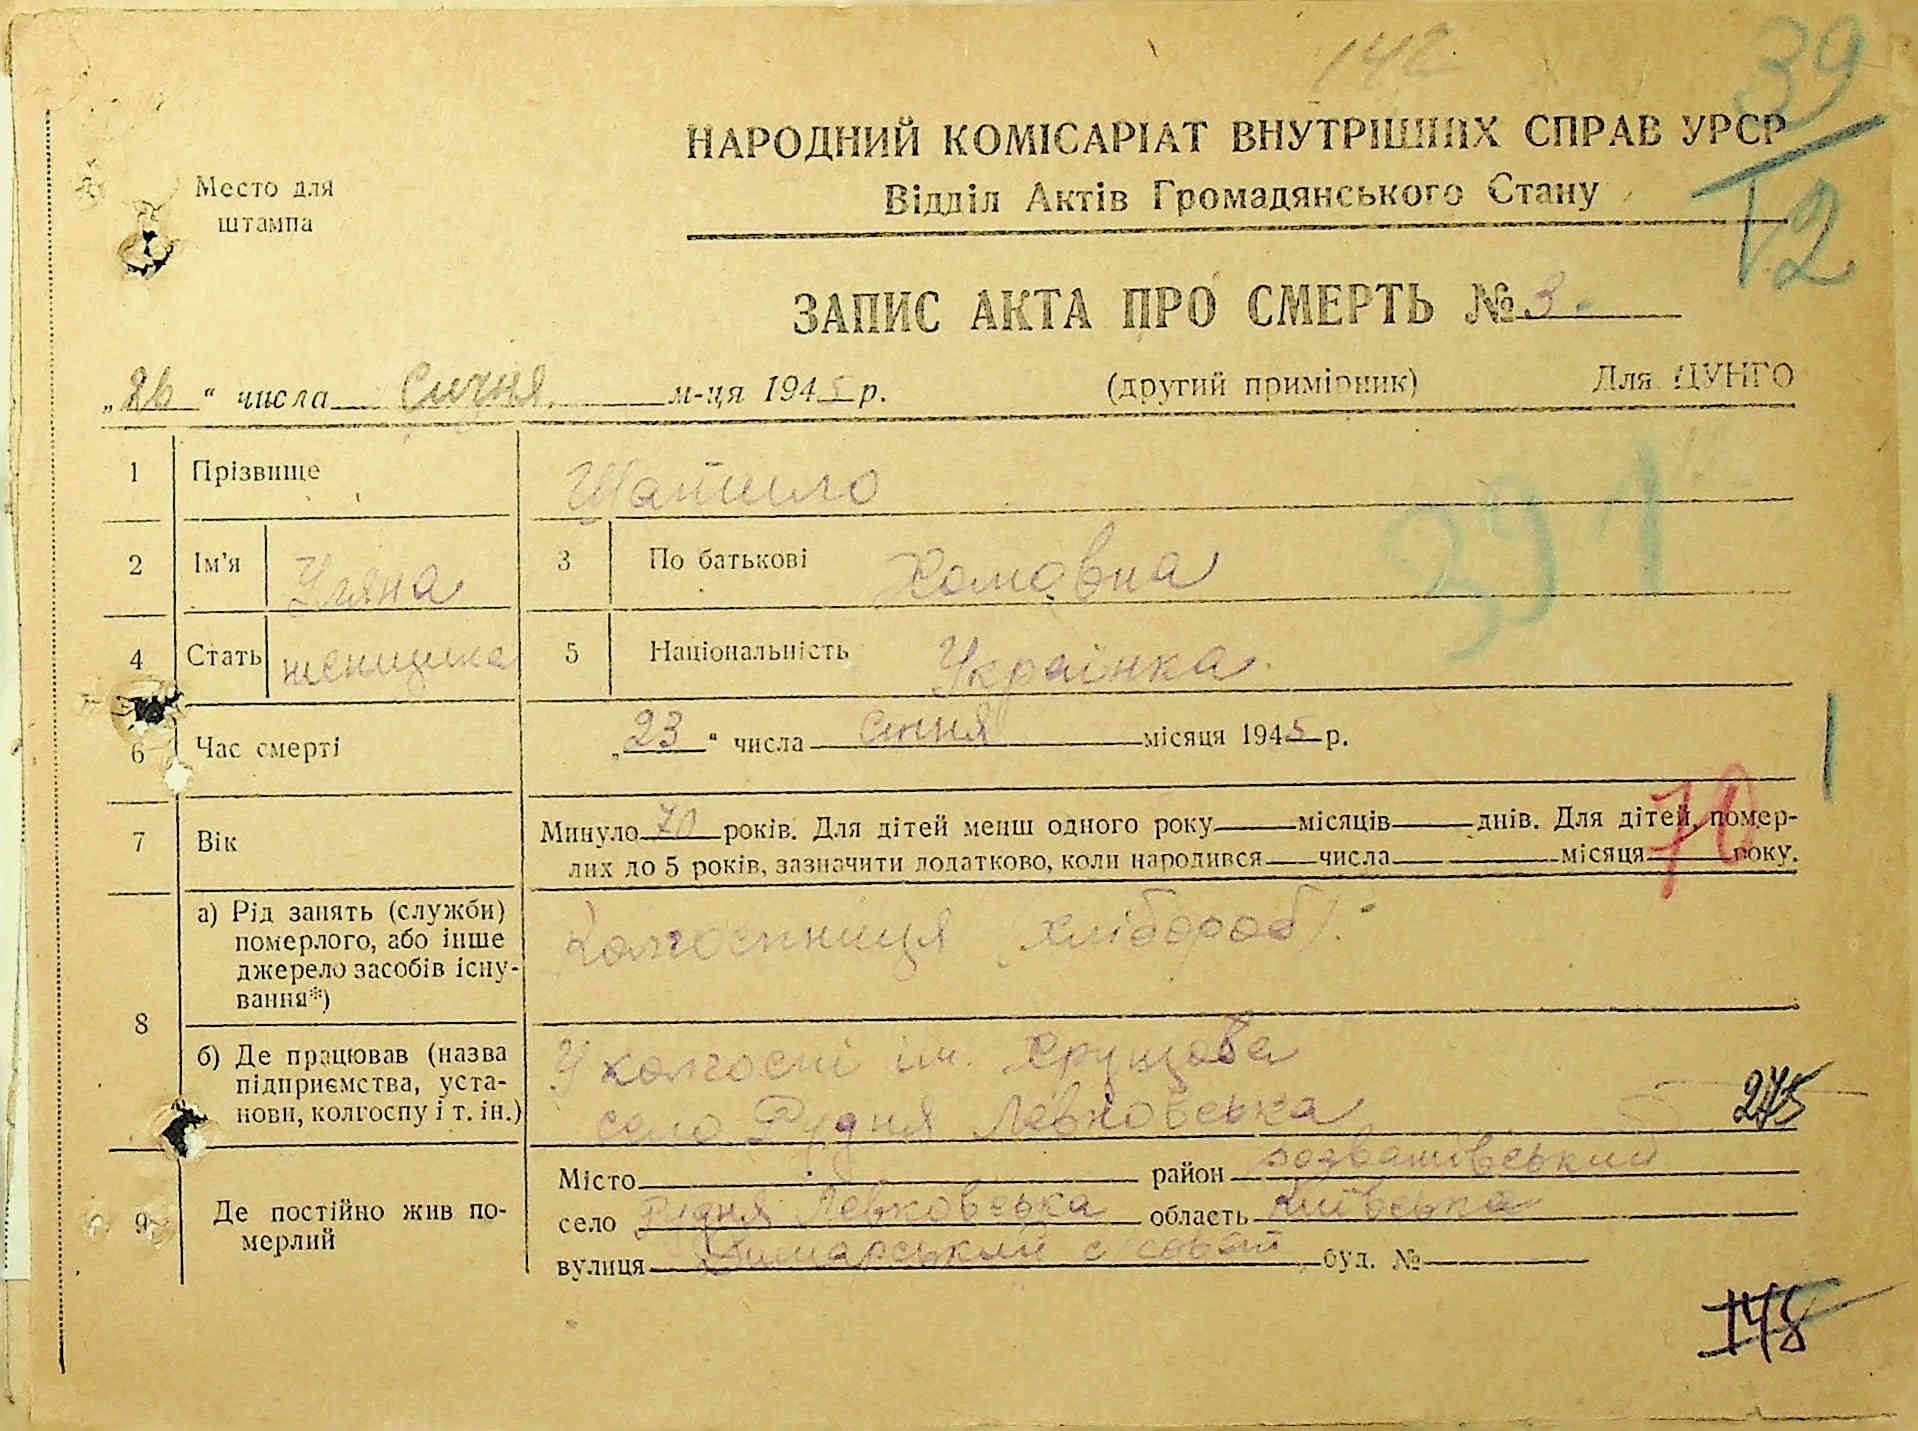 142
39
12
НАРОДНИЙ КОМІСАРІАТ ВНУТРІШНІХ СПРАВ УРСР
Відділ Актів Громадянського Стану
Место для
штампа
ЗАПИС АКТА ПРО СМЕРТЬ № 3.
„26“ числа Січня м-ця 1945 р. (другий примірник) Для ЦУНГО
1 Прізвище Шатило
391
2 Ім'я Уляна 3 По батькові Хомовна
4 Стать женщина 5 Національність Українка.
6 Час смерті „23“ числа січня місяця 1945 р.
7 Вік Минуло 70 років. Для дітей менш одного року місяців днів. Для дітей, помер-
лих до 5 років, зазначити додатково, коли народився числа місяця року.
70
8 а) Рід занять (служби)
померлого, або інше
джерело засобів існу-
вання*)
Колгоспниця (хлібороб).
б) Де працював (назва
підприємства, уста-
нови, колгоспу і т. ін.)
У колгоспі ім. Хрущова
село Рудня Левковська
245
9 Де постійно жив по-
мерлий
Місто район розважівський
село Рудня Левковська область Київська
вулиця с совет буд. №
148